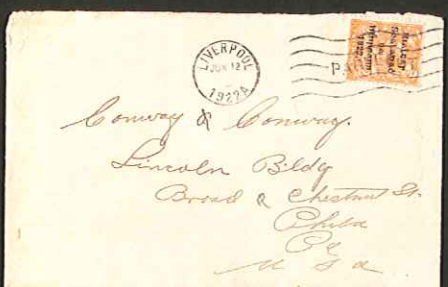 LIVERPOOL
JUN 12
1922 A
PA
Rialtas
Sealadac
na
hÉireann
1922
Conway & Conway.
Lincoln Bldg
Broad & Chestnut St.
Phila
Pa
U S a